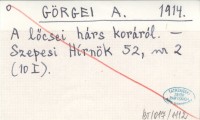 GÖRGEI A. 1914.
A lőcsei hárs koráról. -
Szepesi Hírnök 52, nr 2
(10 I).